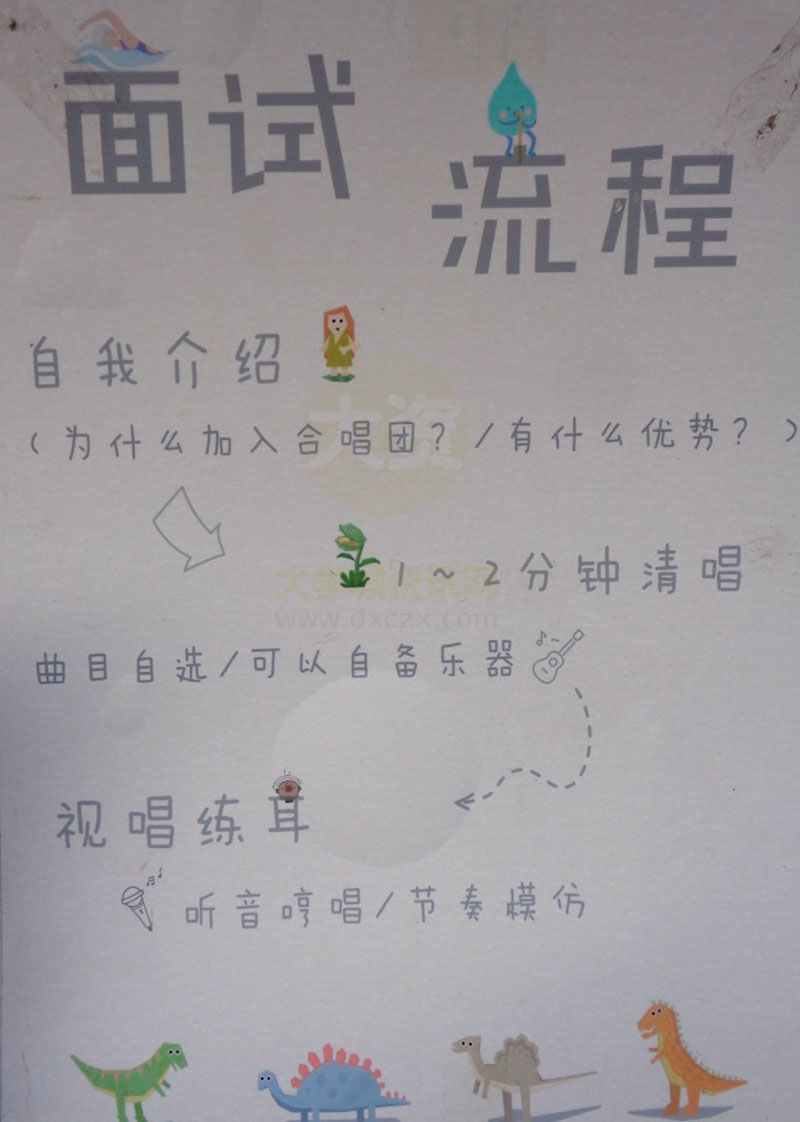 面试
流程
自我介绍
（为什么加入合唱团？/有什么优势？）
1~2分钟清唱
曲目自选/可以自备乐器
视唱练耳
听音哼唱/节奏模仿
大资
www.dxczx.com